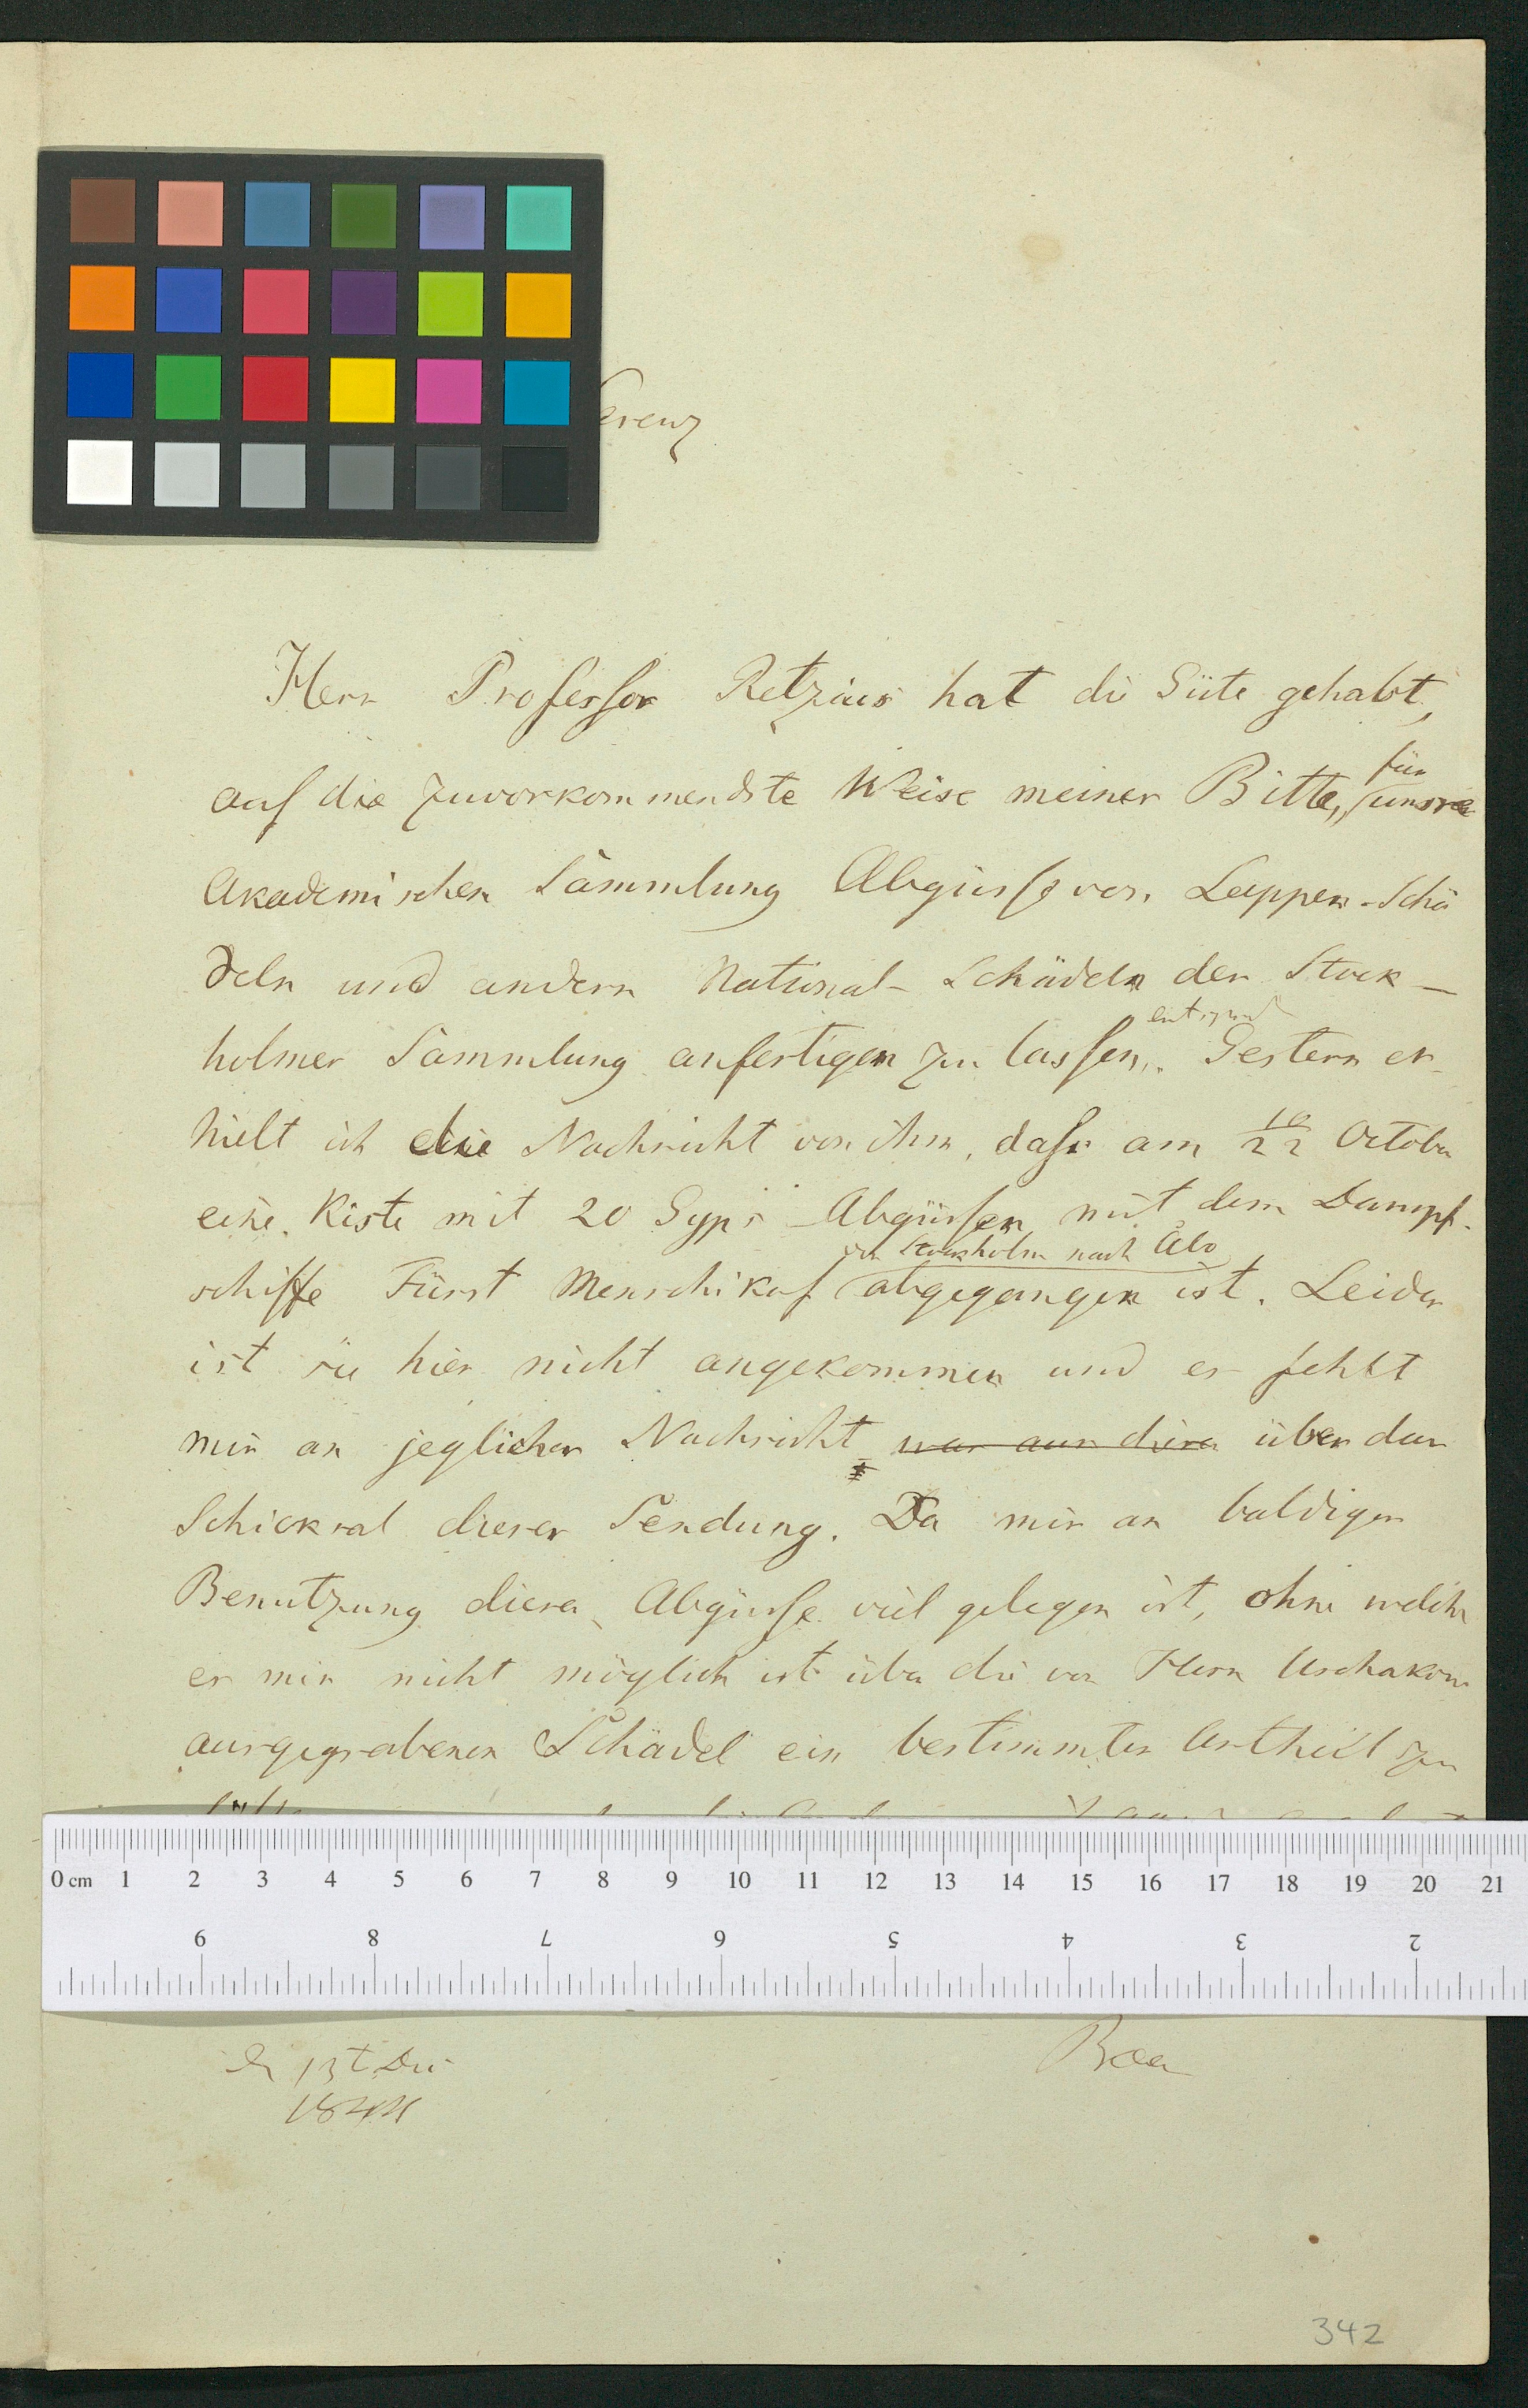 Herr Professor Retzius hat die Güte gehabt,
auf die zuvorkommendste Weise meiner Bitte, für unsre
Akademischen Sammlung Abgüsse von Lappen-Schä
deln und andern National-Schädeln der Stock-
holmer Sammlung anfertigen zu lassen, Gestern er
hielt ich die Nachricht von ihm, dass am 10/22 October
eine Kiste mit 20 Gyps-Abgüssen mit dem Dampf-
von Stockholm nach Åbo
schiffe Fürst Menschikof abgegangen ist. Leider
ist sie hier nicht angekommen und es fehlt
mir an jeglicher Nachricht über das
Schicksal dieser Sendung. Da mir an baldiger
Benutzung dieser Abgüsse viel gelegen ist, ohne welche
es mir nicht möglich ist über die von Herrn Uschakow
ausgegrabenen Schädel ein bestimmtes Urtheil zu
0 cm 1 2 3 4 5 6 7 8 9 10 11 12 13 14 15 16 17 18 19 20 21
9 8 7 6 5 4 3 2
Baer
13t Dec
1844
342